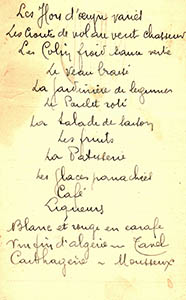 Les Hors d'œuvre variés
Les Croute de vol au vent chasseur
Les Colin froid sauce verte
Le Veau braisé
La jardinière de legumes
Le Poulet roti
La Salade de saison
Les fruits
La Patisserie
Les glaces panachées
Café
Liqueurs
Blanc et rouge en carafe
Vin fin d'algerie - Tavel
Carthagene - Mousseux